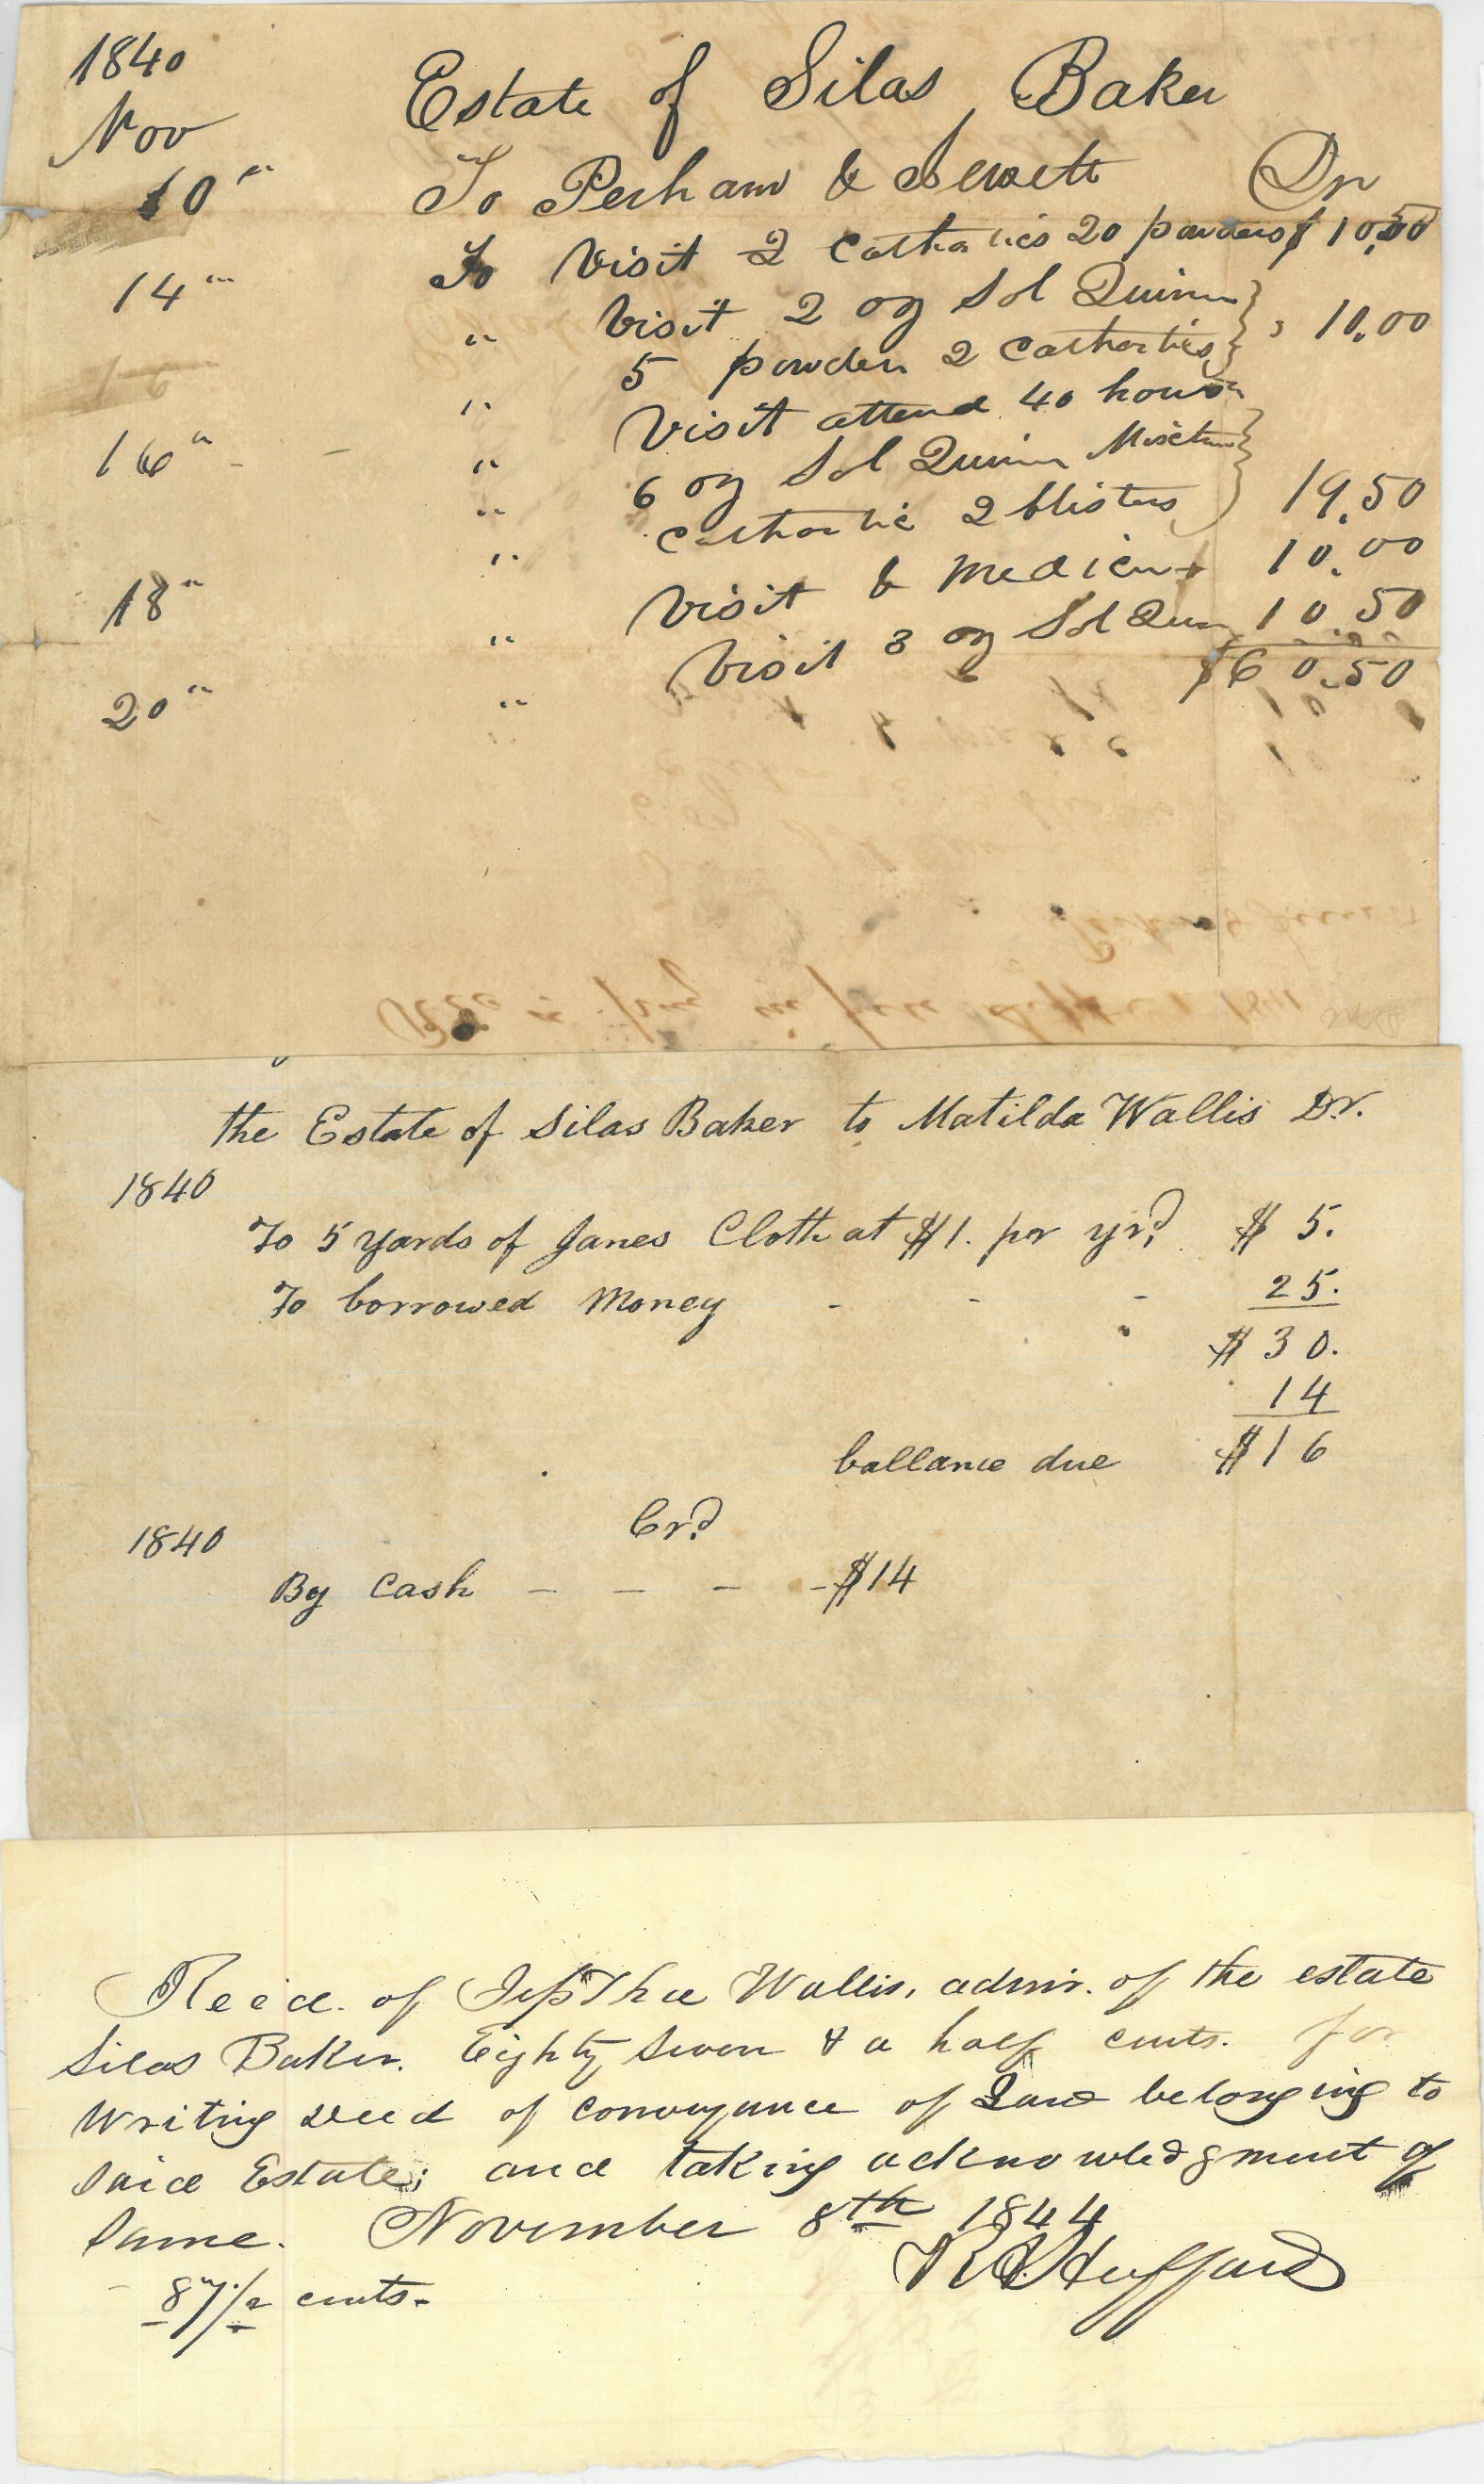 1840
Estate of Silas Baker
Nov
To Perham & Jewett Dr
10"
To Visit 2 Cathartics 20 powders $ 10.50
14" " Visit 2 oz Sol Quinin
" 5 powders 2 Cathartics " 10.00
16" - - " Visit attend 40 hours
" 6 oz Sol Quinin Mixture
" Cathartic 2 blisters 19.50
18" " Visit & Medicine 10.00
20" " Visit 3 oz Sol Quin 10.50
$60.50
the Estate of Silas Baker to Matilda Wallis Dr.
1840
To 5 yards of Janes Cloth at $1. per yrd. $ 5.
To borrowed Money - - - 25.
$ 30.
14
ballance due $16
Crd
1840
By Cash - - - - $14
Recd. of Jepthae Wallis, admr. of the estate
Silas Baker. Eighty seven & a half cents. for
writing deed of conveyance of Land belonging to
said Estate; and taking acknowledgment of
same. November 8th 1844
87 1/2 cents. Huffard